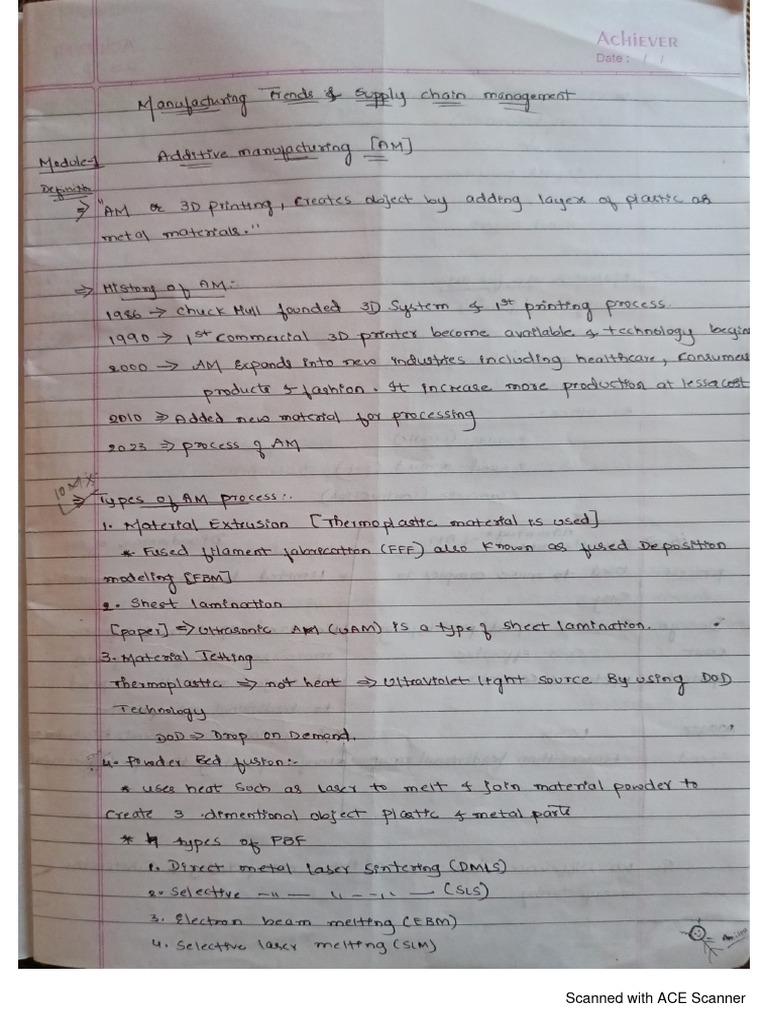 Achiever
Date: / /
Manufacturing Trends & Supply chain management
Module-1 Additive manufacturing [AM]
Definitn
⇒ "AM or 3D printing, creates object by adding layers of plastic or
metal materials."
⇒ History of AM:-
1986 → Chuck Hull founded 3D System & 1st printing process.
1990 → 1st Commercial 3D printer become available & technology begin
2000 → AM Expands into new industries including healthcare, consumer
products & fashion. It increase more production at lessa cost
2010 ⇒ Added new material for processing
2023 ⇒ process of AM
10 M
⇒ Types of AM process:-
1. Material Extrusion [Thermoplastic material is used]
* Fused filament fabrecation (FFF) also known as fused Deposition
modeling [FBM]
2. Sheet lamination
[paper] ⇒ Ultrasonic AM (UAM) is a type of sheet lamination.
3. Material Jetting
Thermoplastic ⇒ not heat ⇒ Ultraviolet light source By using DOD
Technology
DOD ⇒ Drop on Demand.
4. Powder Bed fusion:-
* uses heat such as laser to melt & join material powder to
create 3 dimentional object plastic & metal parts
* 4 types of PBF
1. Direct metal laser sintering (DMLS)
2. Selective -"- - "- -"- - (SLS)
3. Electron beam melting (EBM)
4. Selective laser melting (SLM)
Scanned with ACE Scanner